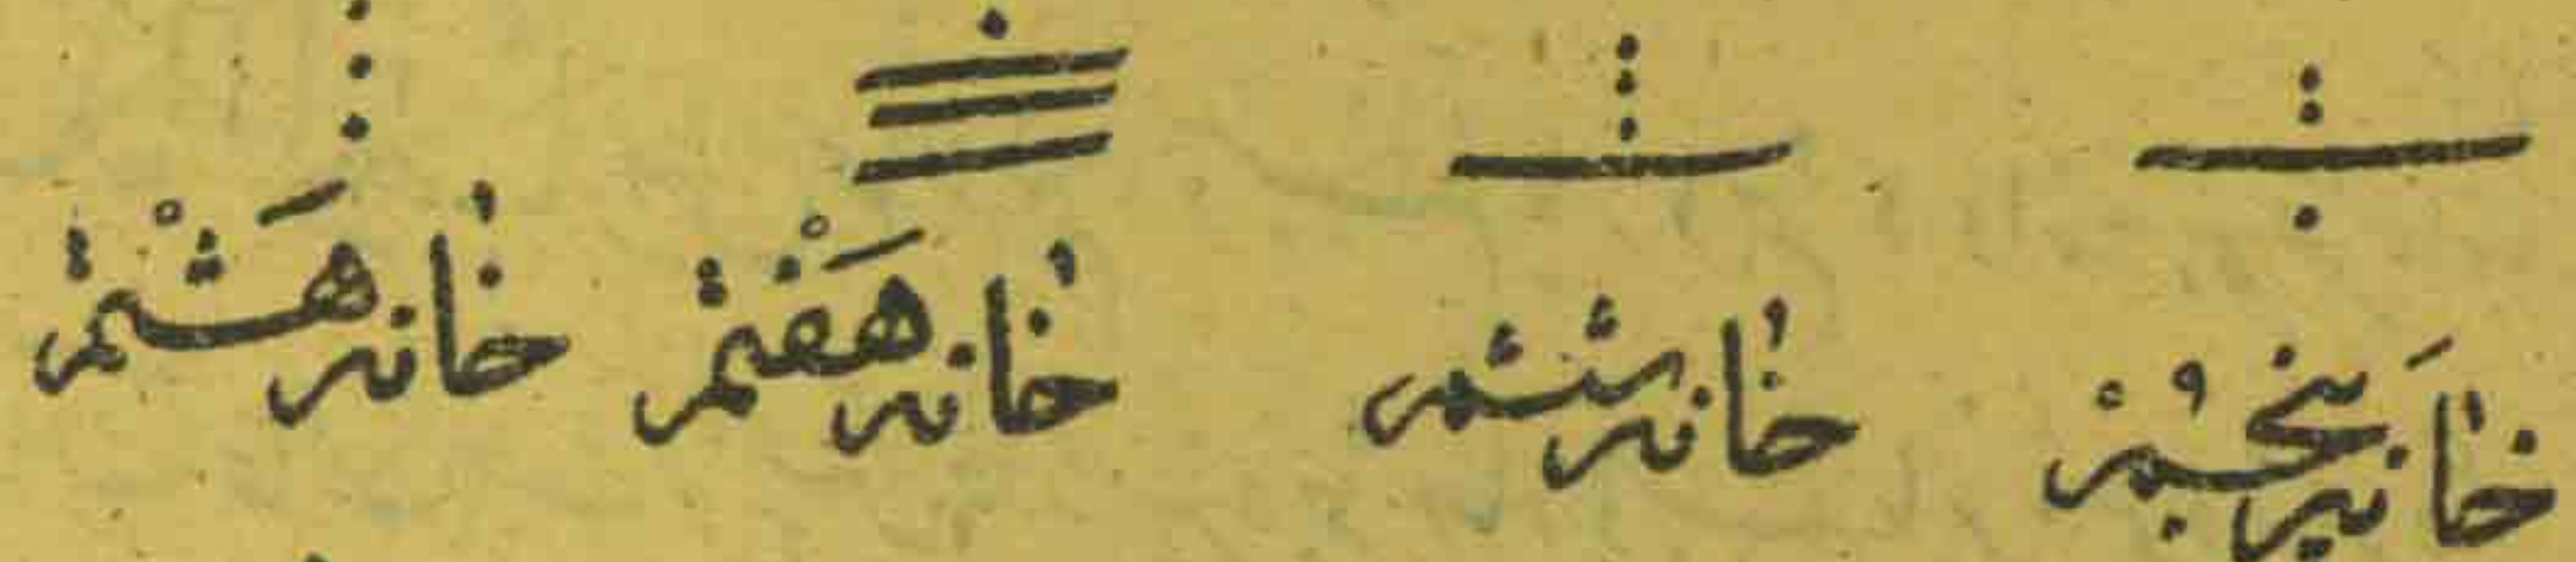 خانه پنجم خانه ششم خانه هفتم خانه هشتم